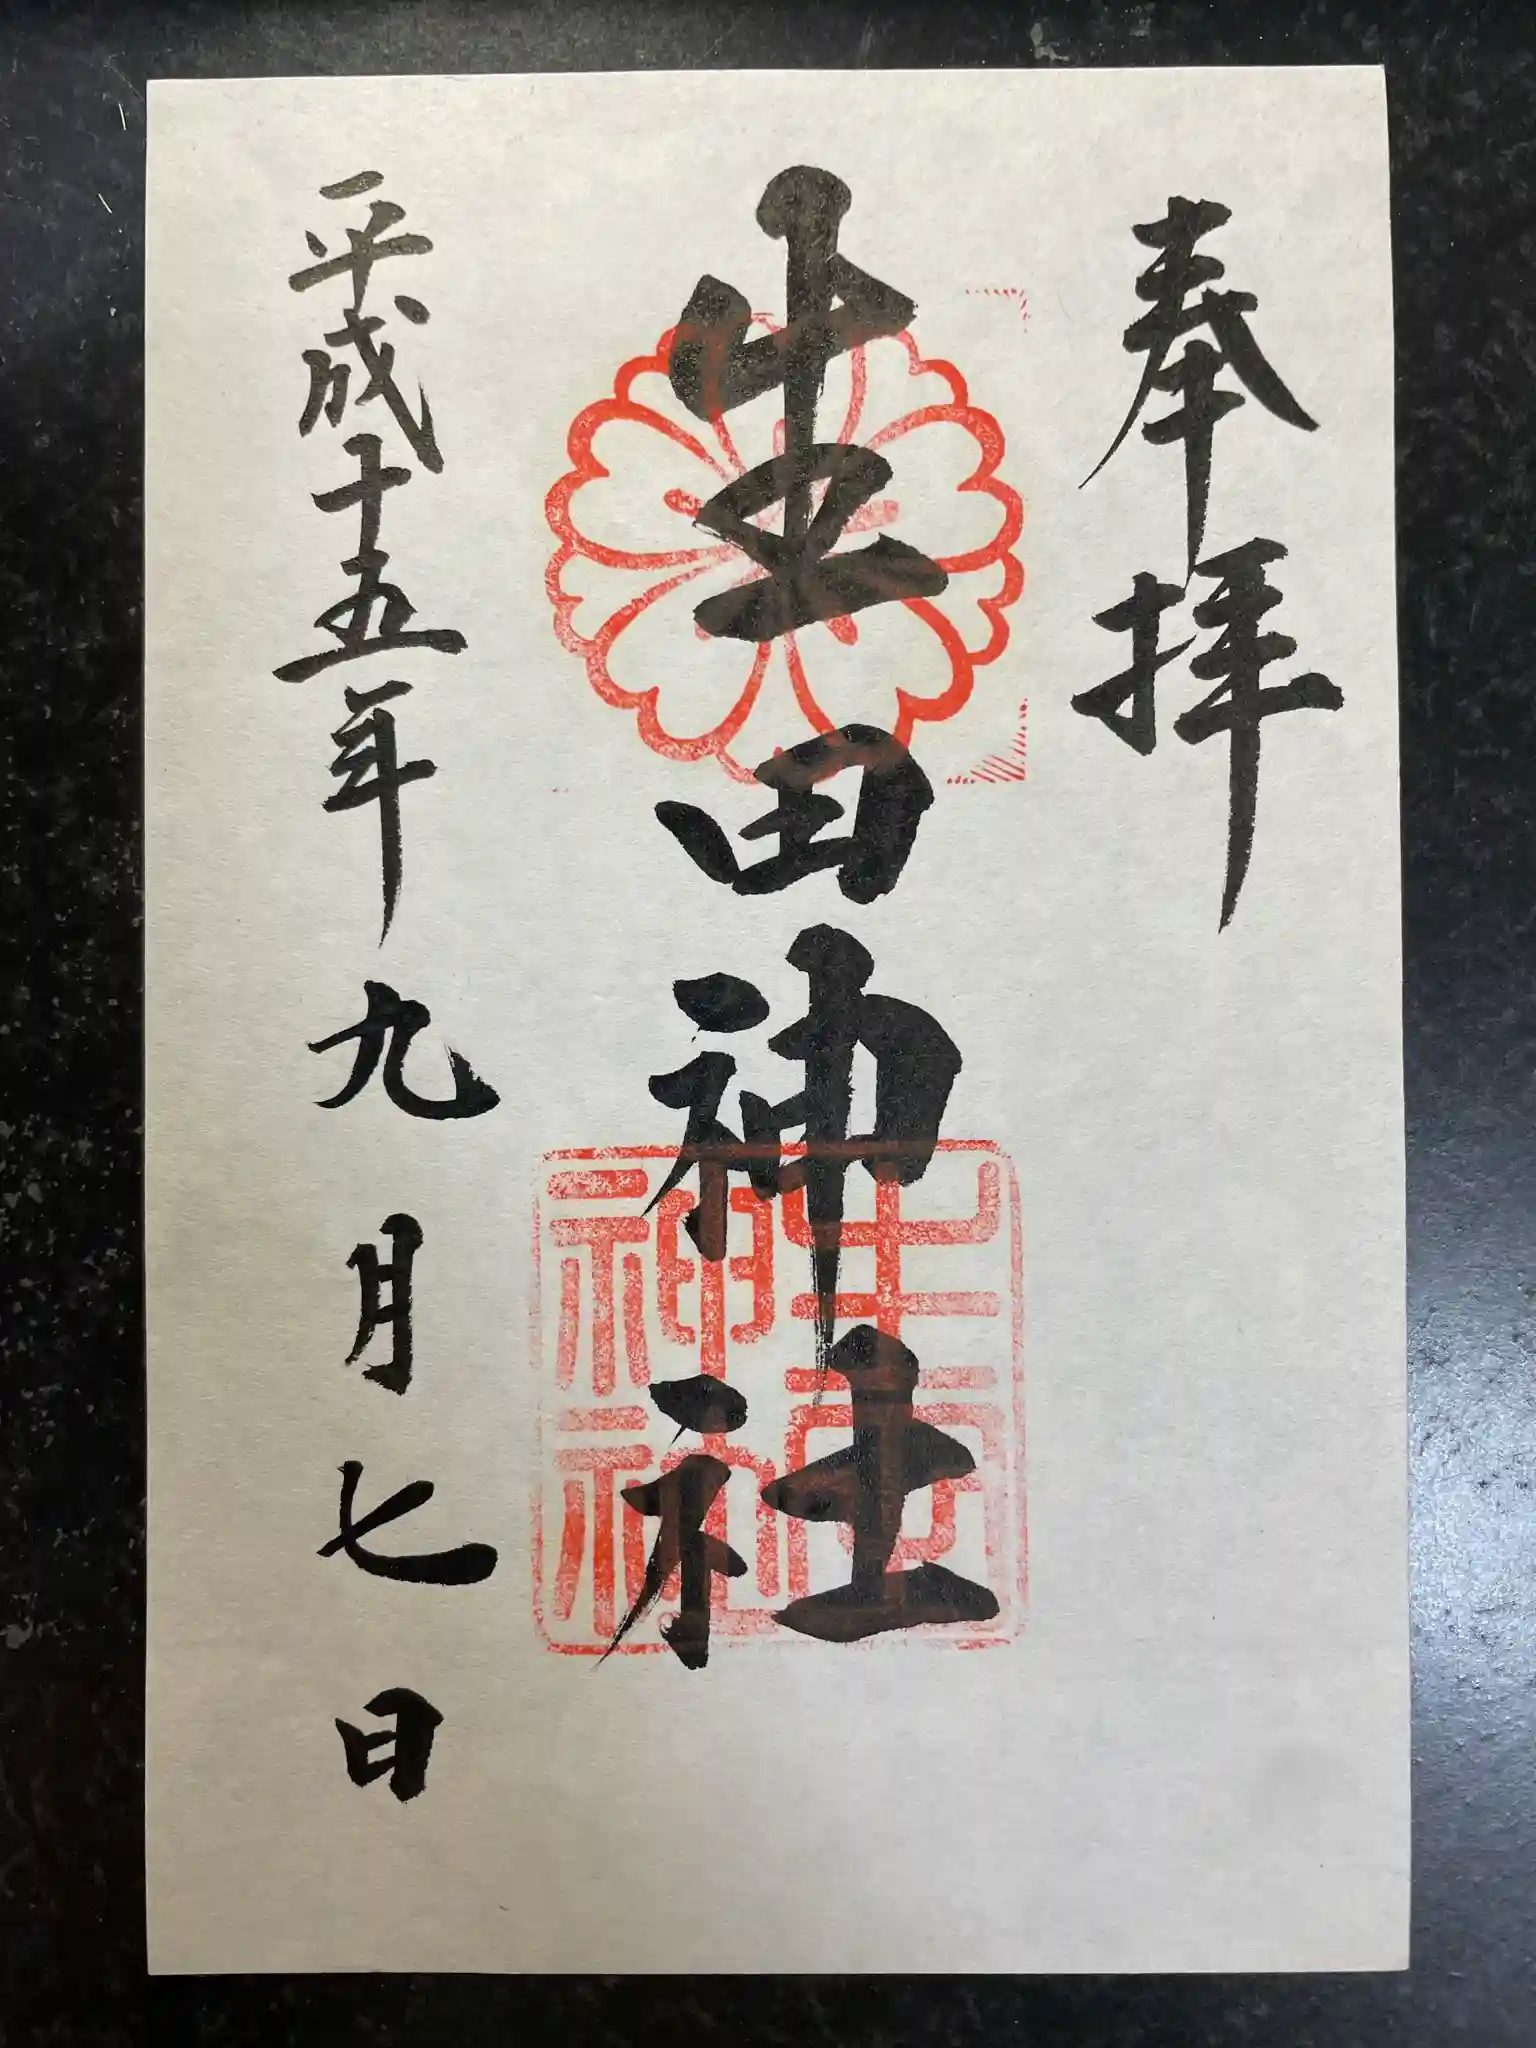 奉拝
生田神社
平成十五年九月七日
生田
神社